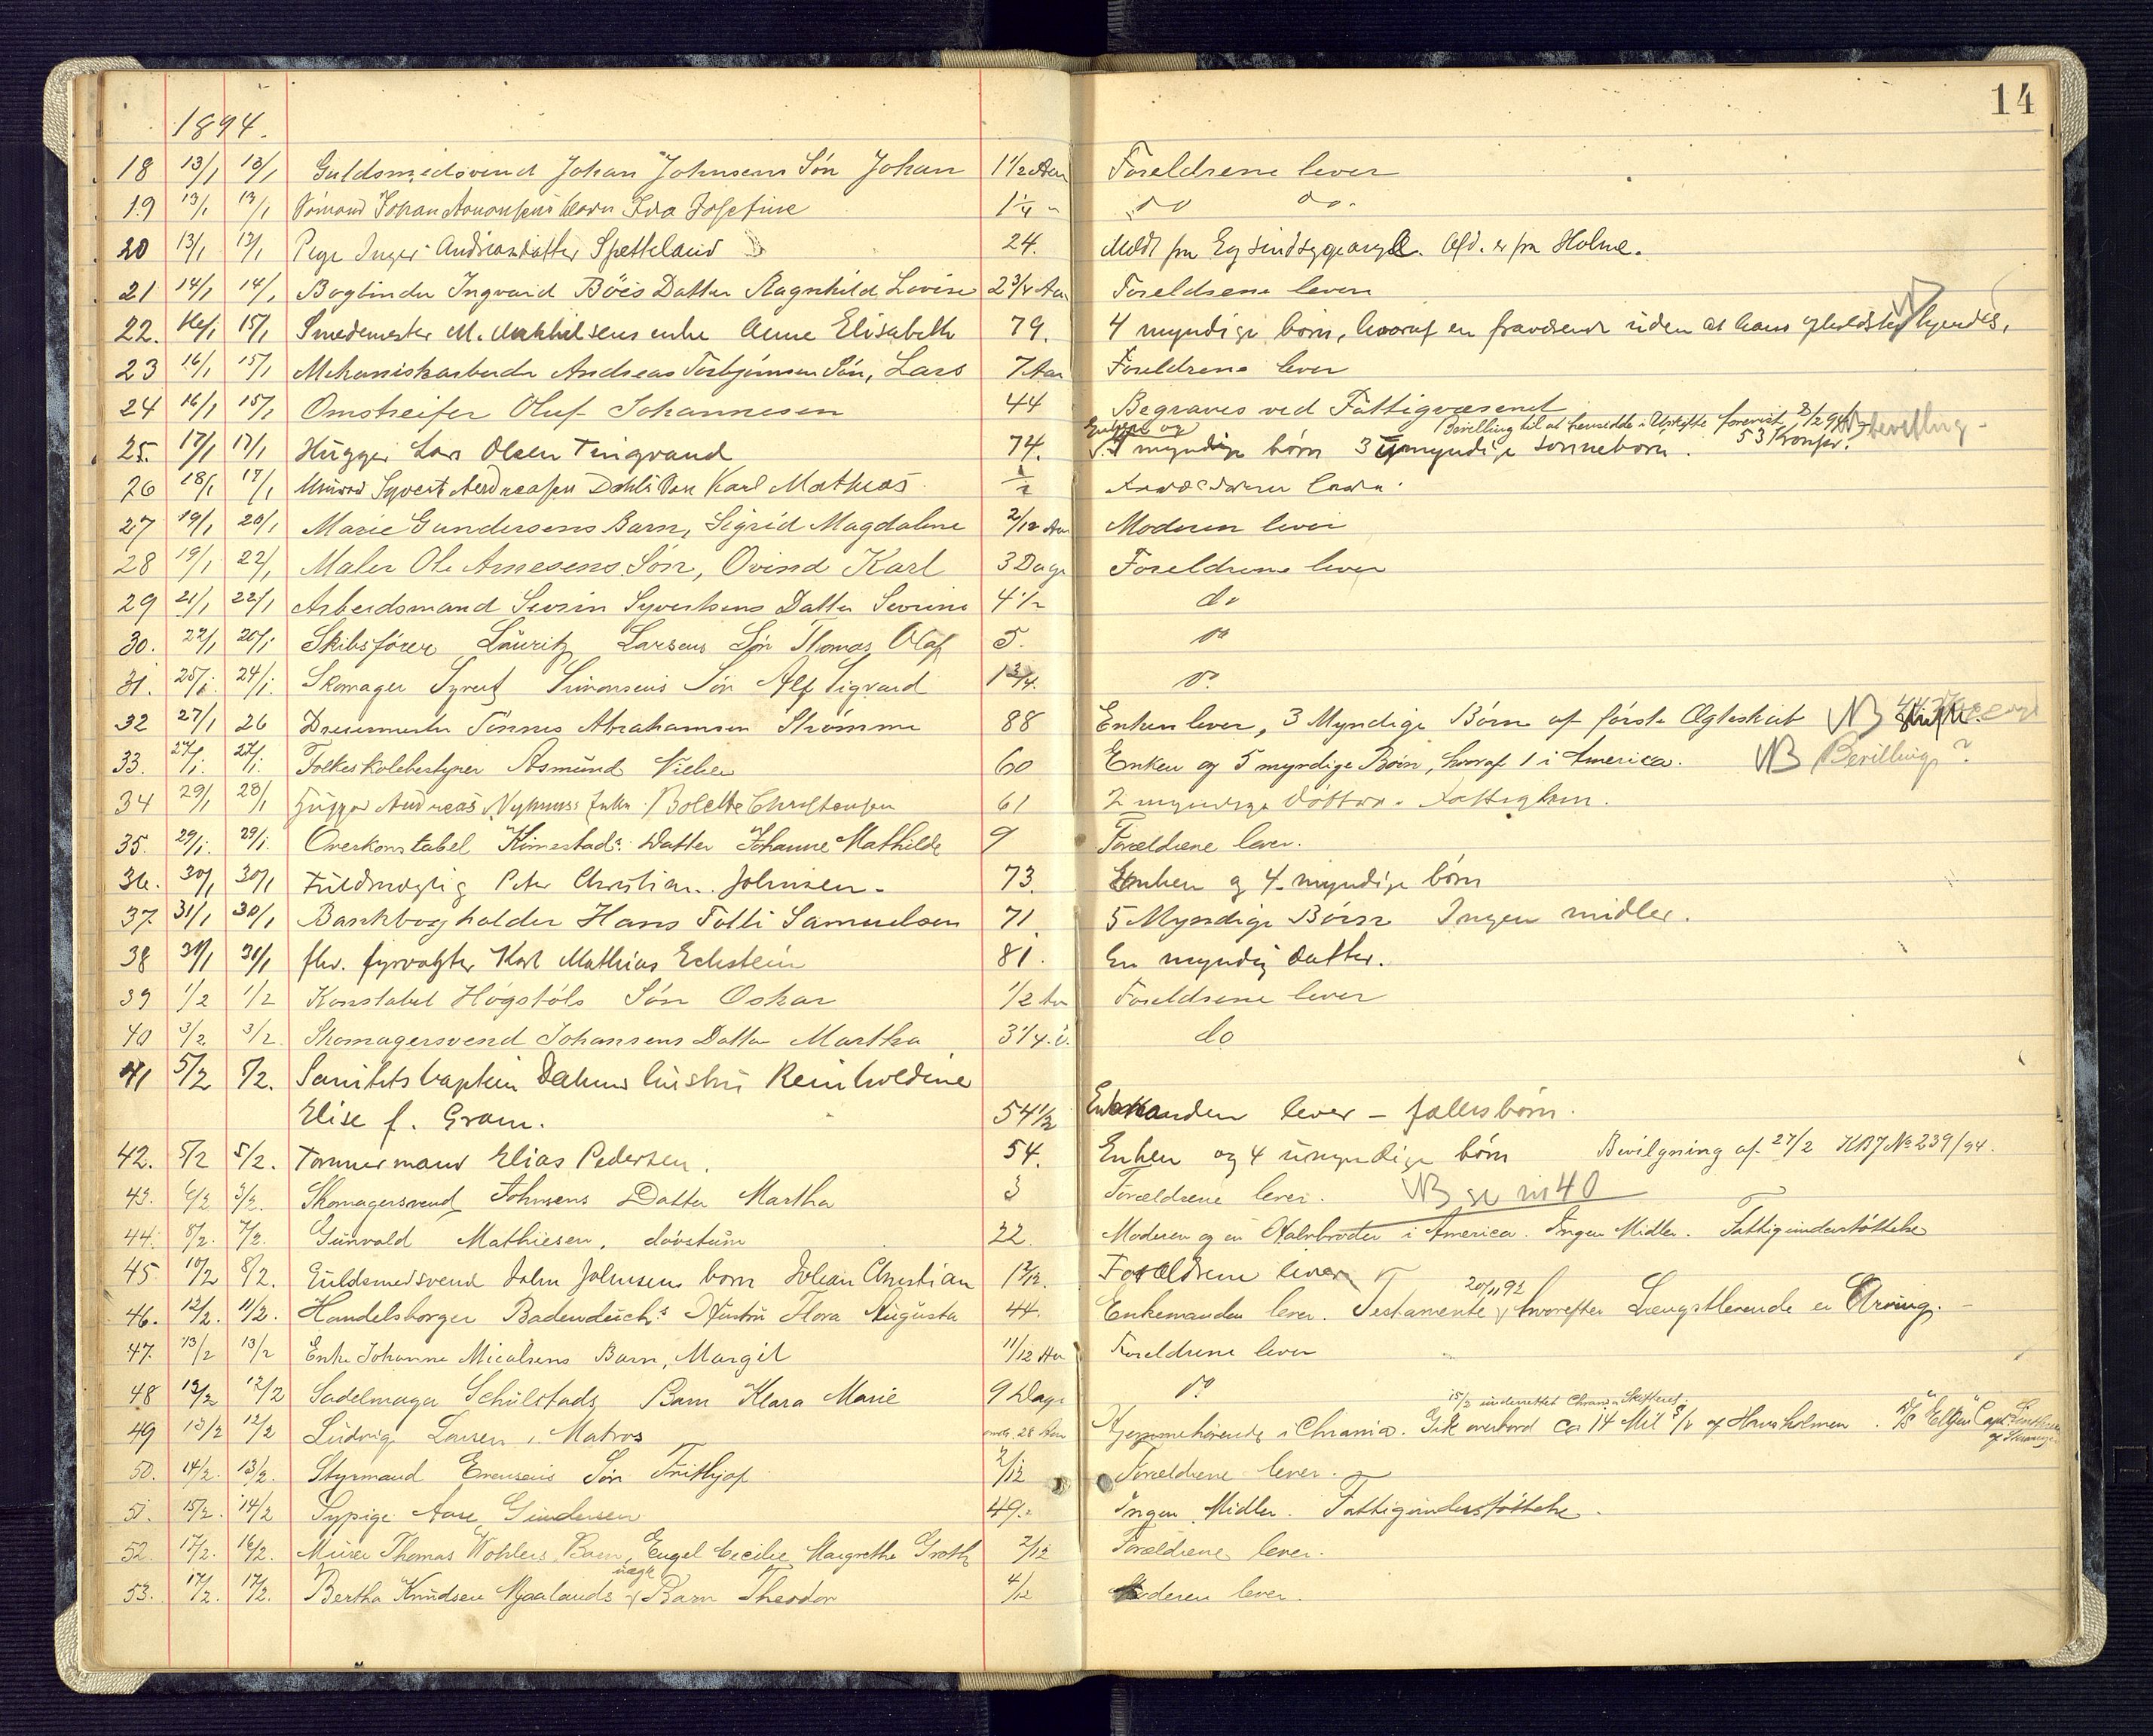 14
1894.
18 13/1 13/1 Guldsmedsvend Johan Johnsens Søn Johan 1 1/2 Aar Foreldrene lever
19 13/1 13/1 Johan Aanonsens barn Ida Josefine 1 1/4 " do do.
20 13/1 12/1 Pige Inger Andreasdatter Spetteland 24. Meldt fra Eg sindssygeasyl. Afd. er fra Holme.
21 14/1 14/1 Bogbinder Ingvard Böes Datter Ragnhild Lovise 2 3/4 Aar Foreldrene lever
22. 16/1 15/1 Smedemester M. enke Anne Elisabeth 79. 4 myndige börn, hvoraf en fraværende uden at hans opholdsted kjendes.
23 16/1 15/1 Mekaniskarbeider Andreas Torbjörnsen Sön, Lars 7 Aar Foreldrene lever
24 16/1 15/1 Omstreifer Oluf Johannesen 44 Begraves ved Fattigvæsenet
Enken og Bevilling til at hensidde i Uskifte forevist 8/2 94 bevilling
25. 17/1 17/1 Hugger Lars Olsen Tingvand 74. myndige börn 3 umyndige sönnebörn. 53 Konfer.
26 18/1 17/1 Syvert Andreasen Dahls Karl Mathias 1/2 lever
27 19/1 20/1 Marie Gundersens Barn, Sigrid Magdalene 2/12 Aar Moderen lever
28 19/1 22/1 Maler Ole Arnesens Sön, Övind Karl 3 Dage Foreldrene lever
29 21/1 22/1 Arbeidsmand Severin Syvertsens Datter Severine 4 1/2 do
30. 22/1 20/1 Skibsförer Lauritz Larsens Sön Thomas Olaf 5. do
31. 25/1. 24/1. Skomager Syvert Simonsens Sön Alf Sigvard 1 3/4. do
32 27/1 26 Dreiermester Tönnes Abrahamsen Strömme 88 Enken lever, 3 Myndige Börn af förste Ægteskab NB
33. 27/1. 27/1. Folkeskolebestyrer Asmund Viehe 60 Enken og 5 myndige Börn, hvoraf 1 i America. NB Bevilling?
34 29/1 28/1 Hugger Andreas Enke Bolette Christensen 61 2 myndige döttre. Fattiglem.
35. 29/1. 29/1. Overkonstabel Kimestads Datter Johanne Mathilde 9 Forældrene lever.
36. 30/1 30/1 Fuldmægtig Peter Christian Johnsen. 73. Enken og 4 myndige börn
37. 31/1 30/1 Bankbogholder Hans Totti Samuelsen 71. 5 Myndige Börn Ingen midler.
38 31/1 31/1 fhv. fyrvogter Karl Mathias Eckstein 81. En myndig datter.
39 1/2 1/2 Konstabel Högstöls Sön Oskar 1/2 Aar Foreldrene lever
40 3/2 3/2. Skomagersvend Johansens Datter Martha 3 1/4. do
41 5/2 5/2. Sanitetskaptein Dahms hustru Reinholdine
Elise f. Gram. 54 1/2 Enkemanden lever – fællesbörn.
42. 5/2 5/2. Tömmermand Elias Pedersen. 54. Enken og 4 umyndige börn Bevilgning af 27/2 KBJ No 239/94.
43. 6/2 3/2. Skomagersvend Johnsens Datter Martha 3 Forældrene lever. NB se nr 40
44. 8/2. 7/2. Gunvald Mathiesen, dövstum 22 Moderen og en Halvbroder i America. Ingen Midler. Fattigunderstöttelse
45 10/2 8/2. Guldsmedsvend John Johnsens barn Johan Christian 1 2/12. Forældrene lever
20/11 92
46. 12/2. 11/2. Handelsborger Badenduchs Hustru Flora Augusta 44. Enkemanden lever. Testamente hvorefter Længstlevende er Arving.
47. 13/2 13/2 Enke Johanne Micalsens Barn, Margit 11/12 Aar Foreldrene lever
48 13/2 12/2 Sadelmager Schulstads Barn Klara Marie 9 Dage do
15/2 underrettet Chrania Skifteret
49 13/2 12/2 Ludvig Larsen, Matros 28 Aar Hjemmehörende i Chrania. Gik overbord ca 14 Mil af Hansholmen. Capt.
50. 14/2. 13/2. Styrmand Evensens Sön Frithjof 2/12 Forældrene lever.
51. 15/2. 14/2 Sypige Aase Gundersen 49. Ingen Midler. Fattigunderstöttelse.
52. 17/2. 16/2. Murer Thomas Wohlers, Barn, Engel Cecilie Margrethe Groth 2/12 Forældrene lever.
uægte
53. 17/2. 17/2. Bertha Knudsen Mjaalands Barn Theodor 4/12 Moderen lever.